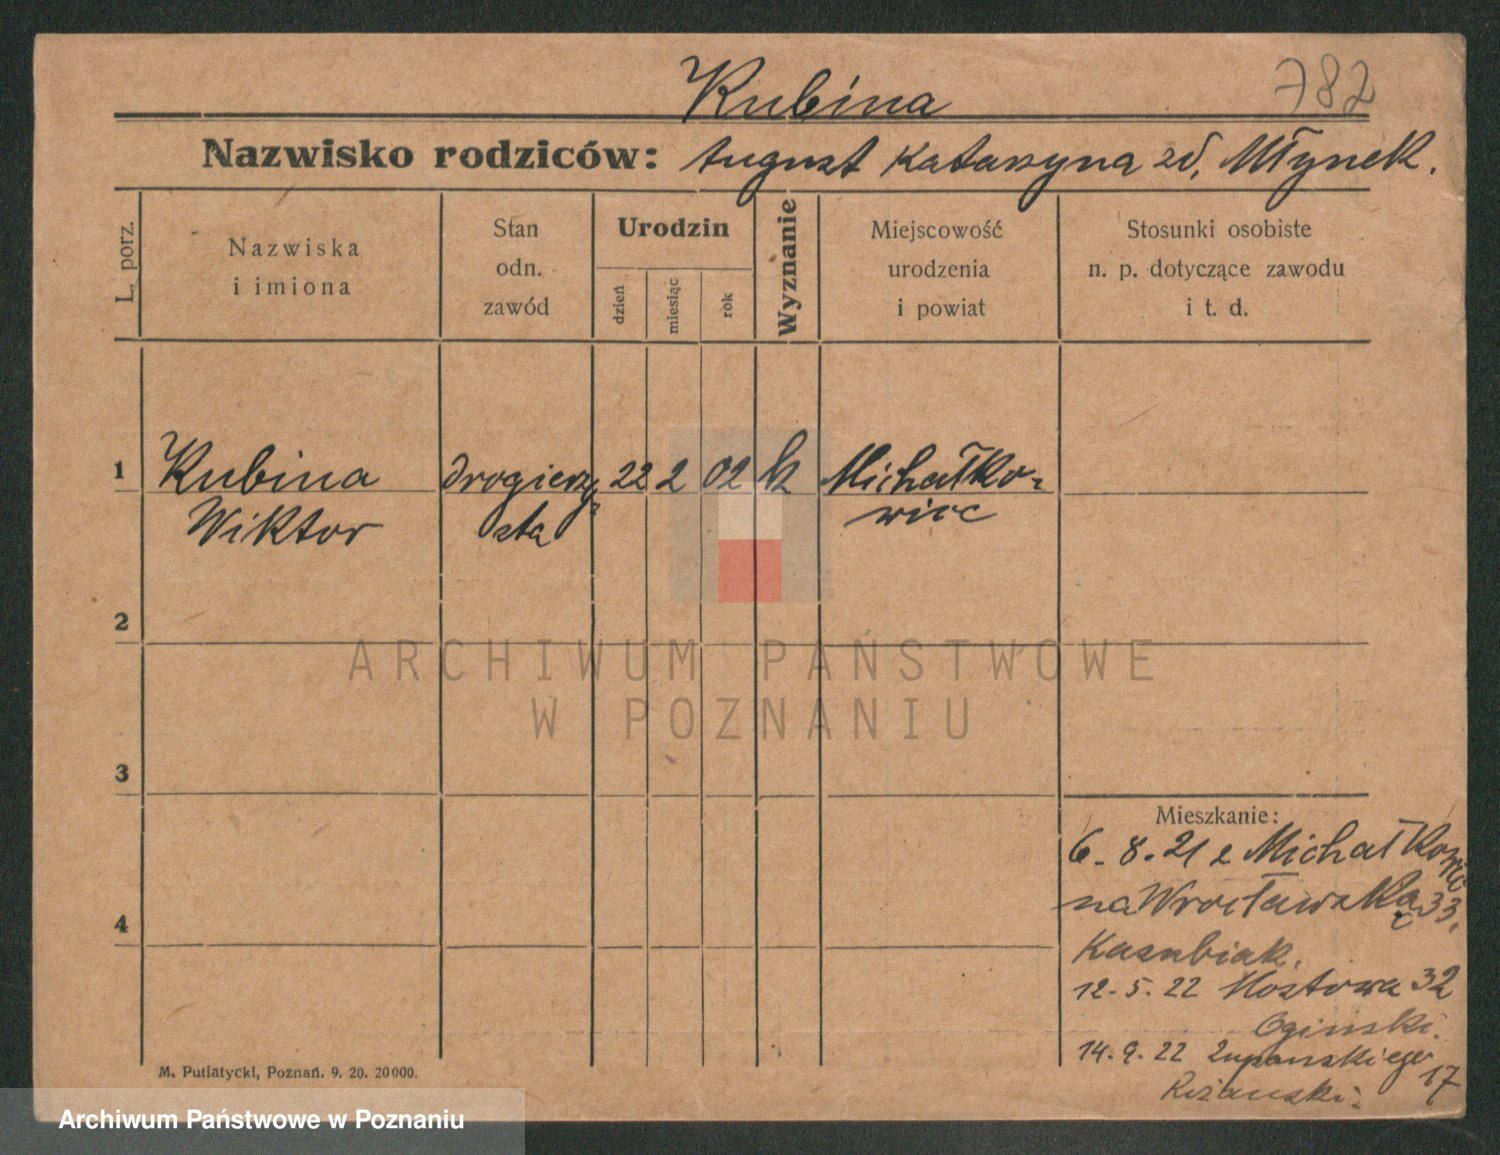 Kubina
782
Nazwisko rodziców: August Katarzyna zd. Młynek.
L. porz.
Nazwiska
i imiona
Stan
odn.
zawód
Urodzin
dzień
miesiąc
rok
Wyznanie
Miejscowość
urodzenia
i powiat
Stosunki osobiste
n. p. dotyczące zawodu
i t. d.
1
Kubina
Wiktor
drogierzy-
sta
22
2
02
k
Michałko-
wice
2
3
4
ARCHIWUM PAŃSTWOWE
W POZNANIU
Mieszkanie:
6.8.21 z Michałkowic
na Wrocławska 33,
Kasubiak.
12.5.22 Mostowa 32
Ogiński.
14.9.22 Zupanskiego 17
M. Putiatycki, Poznań. 9. 20. 20000.
Archiwum Państwowe w Poznaniu